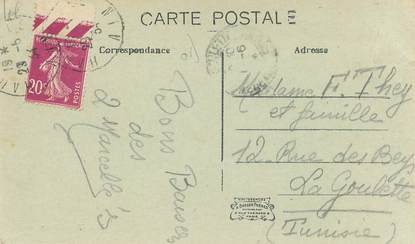 CARTE POSTALE
Correspondance
Adresse
20c
POSTES
Bons Baisers
des
2 Marcelle's
Madame F. They
et famille
12 Rue des Beys
La Goulette
(Tunisie)